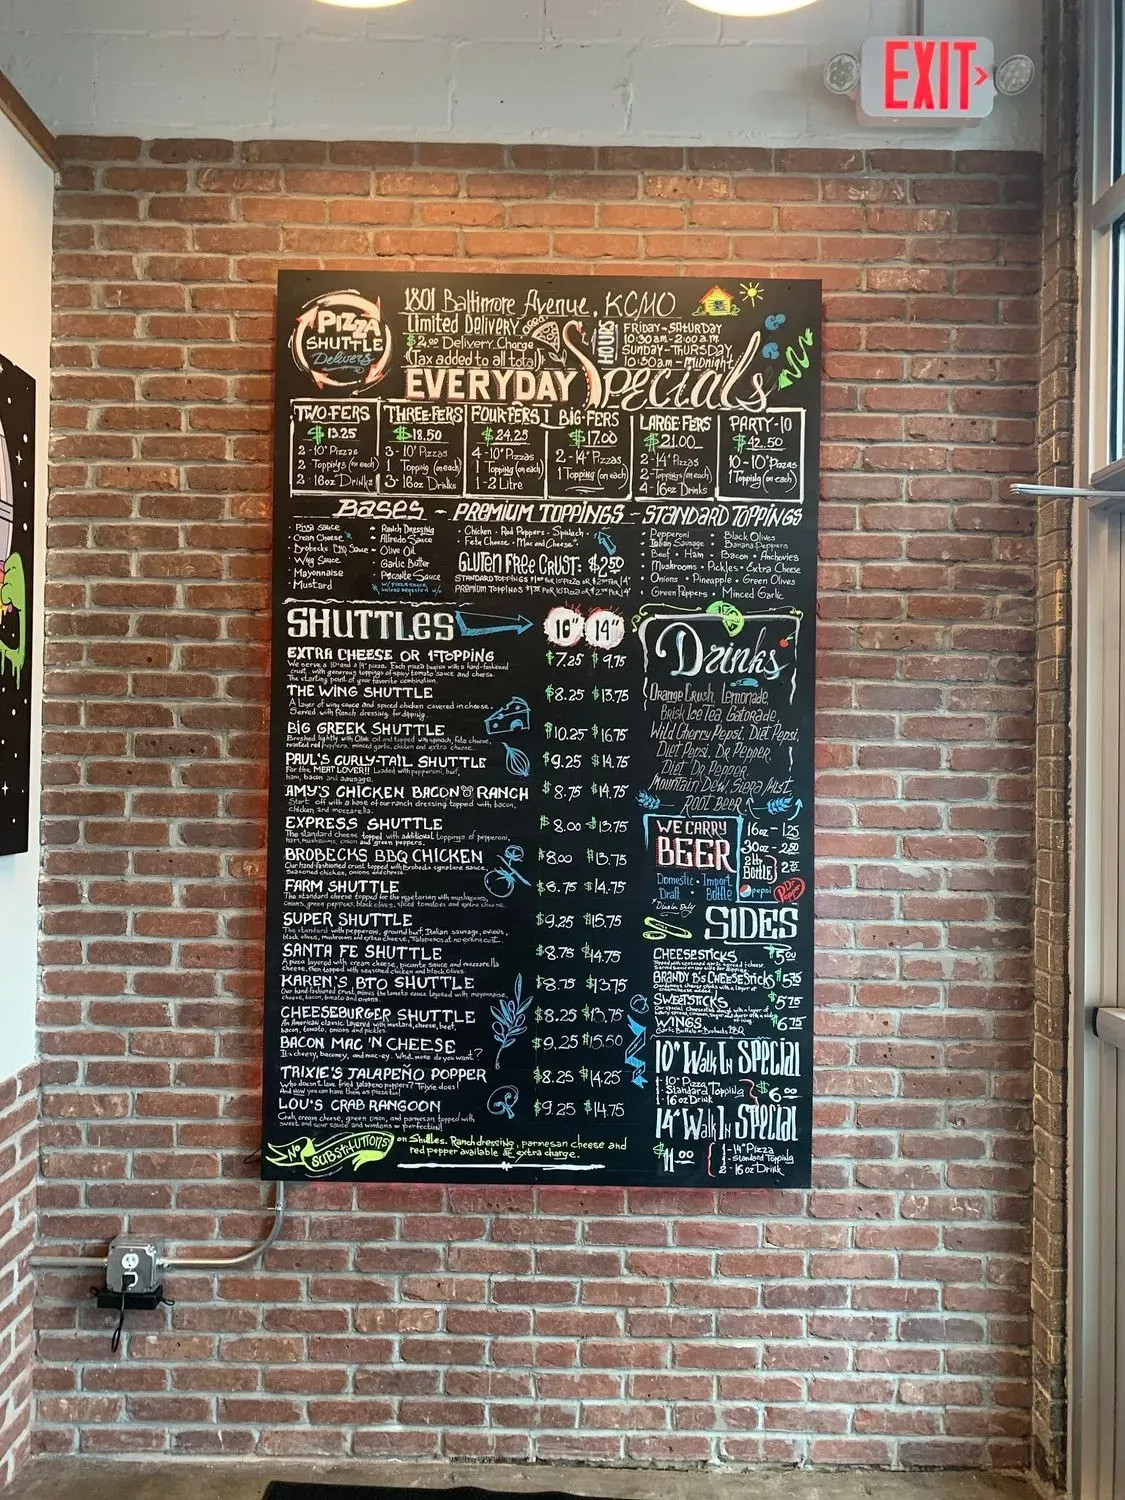 EXIT
PIZZA
SHUTTLE
Delivers
1801 Baltimore Avenue, KCMO
Limited Delivery
$2.00 Delivery Charge
(Tax added to all total)
HOURS
FRIDAY-SATURDAY
10:30am-2:00a.m
SUNDAY-THURSDAY
10:30am-Midnight
EVERYDAY Specials
TWO-FERS
$13.25
2-10" Pizzas
2-Toppings (on each)
2-16oz Drinks
THREE-FERS
$18.50
3-10" Pizzas
1 Topping (on each)
3-16oz Drinks
FOUR-FERS
$24.25
4-10" Pizzas
1 Topping (on each)
1-2 Litre
BIG-FERS
$17.00
2-14" Pizzas
1 Topping (on each)
LARGE FERS
$21.00
2-14" Pizzas
2-Toppings (on each)
4-16oz Drinks
PARTY-10
$42.50
10-10" Pizzas
1 Topping (on each)
BASES - PREMIUM TOPPINGS - STANDARD TOPPINGS
• Pizza Sauce
• Cream Cheese
• Brobecks BBQ Sauce
• Wing Sauce
• Mayonnaise
• Mustard
• Ranch Dressing
• Alfredo Sauce
• Olive Oil
• Garlic Butter
• Picante Sauce
• Chicken • Red Peppers • Spinach
• Feta Cheese • Mac and Cheese
GLUTEN FREE CRUST: $2.50
• Pepperoni • Black Olives
• Italian Sausage • Banana Peppers
• Beef • Ham • Bacon • Anchovies
• Mushrooms • Pickles • Extra Cheese
• Onions • Pineapple • Green Olives
• Green Peppers • Minced Garlic
SHUTTLES
10" 14"
EXTRA CHEESE OR 1-TOPPING $7.25 $9.75
We serve a 10 and a 14" pizza. Each pizza begins with a hand-fashioned
crust with generous toppings of spicy tomato sauce and cheese.
The starting point of your favorite combination.
THE WING SHUTTLE $8.25 $13.75
A layer of wing sauce and spiced chicken covered in cheese.
Served with Ranch dressing for dipping.
BIG GREEK SHUTTLE $10.25 $16.75
Brushed lightly with Olive oil and topped with spinach, feta cheese,
roasted red peppers, minced garlic, chicken and extra cheese.
PAUL'S CURLY-TAIL SHUTTLE $9.25 $14.75
For the MEAT LOVER!! Loaded with pepperoni, beef,
ham, bacon and sausage.
AMY'S CHICKEN BACON RANCH $8.75 $14.75
Start off with a base of our ranch dressing topped with bacon,
chicken and mozzarella.
EXPRESS SHUTTLE $8.00 $13.75
The standard cheese topped with additional toppings of pepperoni,
ham, mushrooms, onion and green peppers.
BROBECKS BBQ CHICKEN $8.00 $13.75
Our hand-fashioned crust topped with Brobecks signature sauce,
Seasoned chicken, onions and cheese.
FARM SHUTTLE $8.75 $14.75
The standard cheese topped for the vegetarian with mushrooms,
onions, green peppers, black olives, sliced tomatoes and extra cheese.
SUPER SHUTTLE $9.25 $15.75
The standard with pepperoni, ground beef, Italian sausage, onions,
black olives, mushrooms and extra cheese, Jalapenos at no extra cost.
SANTA FE SHUTTLE $8.75 $14.75
A pizza layered with cream cheese, picante sauce and mozzarella
cheese, then topped with seasoned chicken and black olives.
KAREN'S BTO SHUTTLE $8.75 $13.75
Our hand fashioned crust, minus the tomato sauce layered with mayonnaise,
cheese, bacon, tomato and onions.
CHEESEBURGER SHUTTLE $8.25 $13.75
An American classic layered with mustard, cheese, beef,
bacon, tomato, onions and pickles.
BACON MAC 'N CHEESE $9.25 $15.50
It's cheesy, baconey, and mac-ey. What more do you want?
TRIXIE'S JALAPEÑO POPPER $8.25 $14.25
Who doesn't love fried jalapeno poppers? Trixie does!
And now you can have them as pizza too!
LOU'S CRAB RANGOON $9.25 $14.75
Crab, cream cheese, green onion, and parmesan topped with
sweet and sour sauce and wontons = perfection!
NO SUBSTITUTIONS on Shuttles. Ranch dressing, parmesan cheese and
red pepper available at extra charge.
Drinks
Orange Crush, Lemonade,
Brisk Ice Tea, Gatorade,
Wild Cherry Pepsi, Diet Pepsi,
Diet Pepsi, Dr. Pepper,
Diet Dr. Pepper
Mountain Dew, Sierra Mist
ROOT BEER
WE CARRY
BEER
Domestic • Import
Draft Bottle
16oz - 1.25
30oz - 2.50
2 Ltr
Bottle 2.75
pepsi
Dr Pepper
SIDES
CHEESESTICKS $5.00
BRANDY B'S CHEESESTICKS $5.75
SWEETSTICKS $5.75
WINGS $6.75
10" Walk In Special
1-10" Pizza
1-Standard Topping
1-16oz Drink
$6.00
14" Walk In Special
$11.00
1-14" Pizza
1-Standard Topping
2-16oz Drink